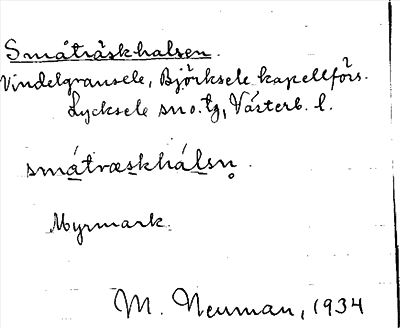 Småträskhalsen.
Vindelgransele, Björksele kapellförs.
Lycksele sn o. tg, Västerb. l.
småtræskhálsn̥
Myrmark.
M. Neuman, 1934